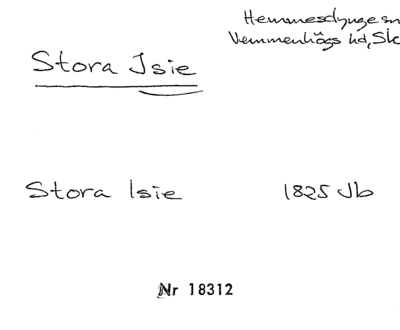 Hemmesdynge sn
Vemmenhögs hd, Sk
Stora Isie
Stora Isie 1825 Jb
Nr 18312